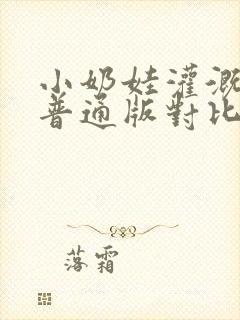 小奶娃灌溉
普通版對比
落霜